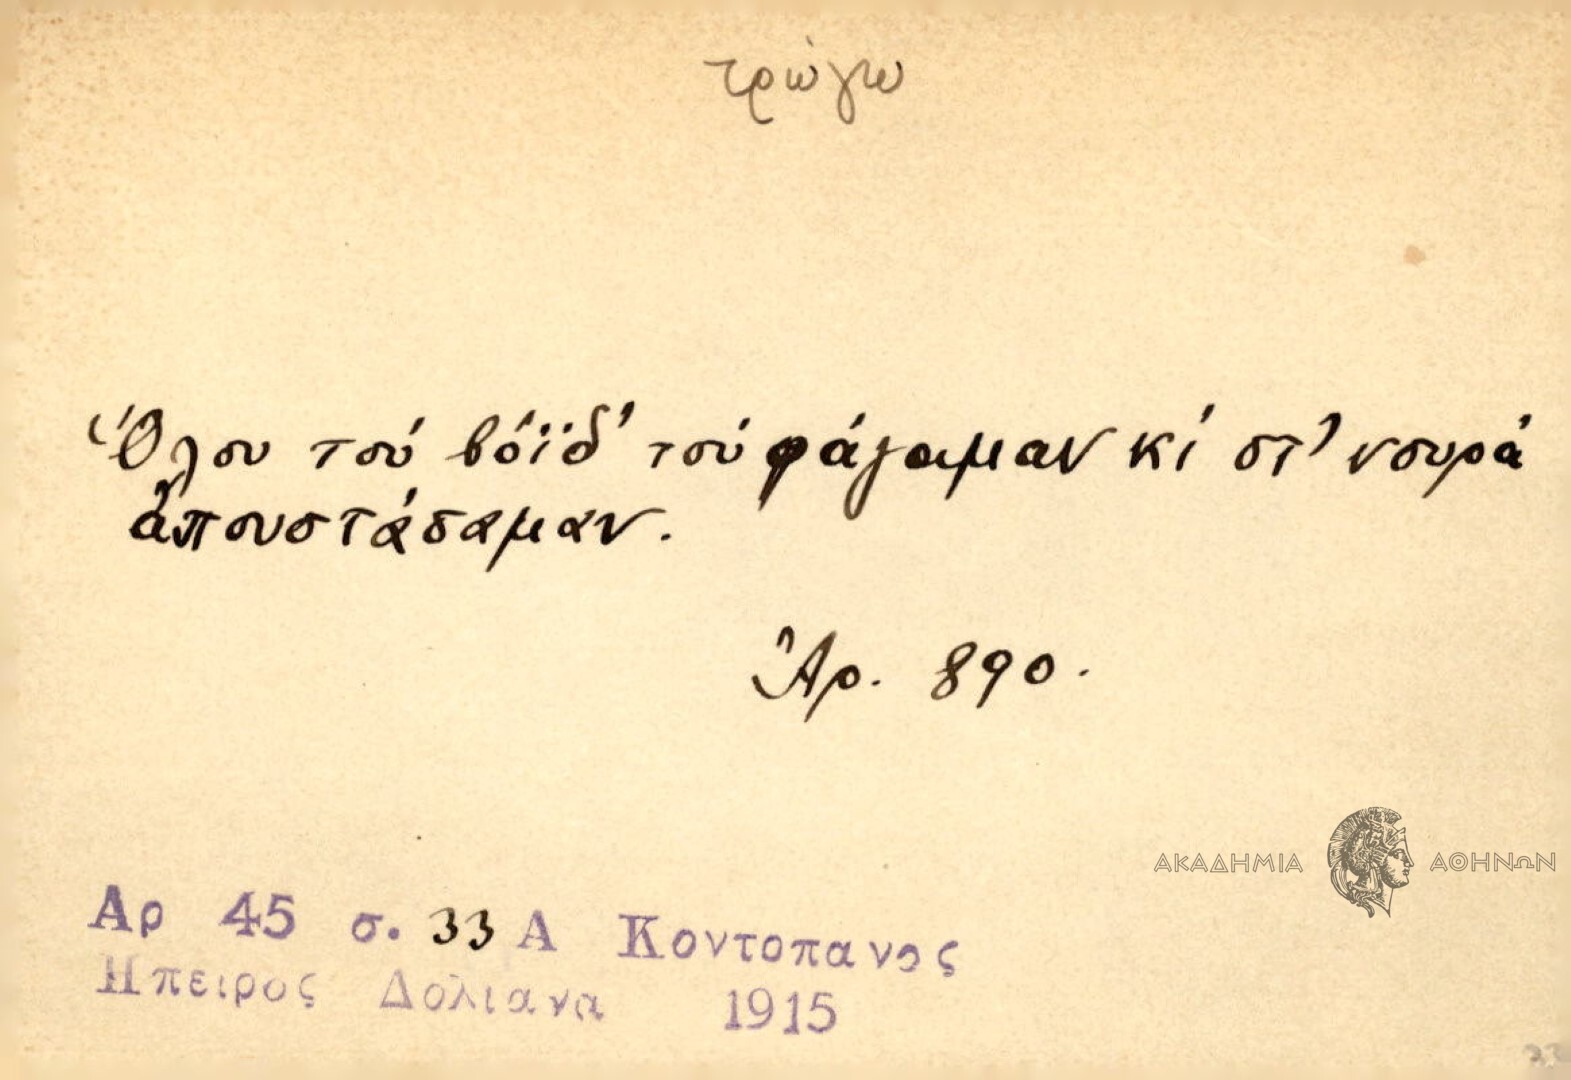 τρώγω
Ὅλου τοὺ βόϊδ' τοὺ φάγαμαν κὶ στ' νουρὰ
ἀπουστάσαμαν.
Ἀρ. 890.
ΑΚΑΔΗΜΙΑ ΑΘΗΝΩΝ
Αρ 45 σ. 33 Α Κοντοπανος
Ηπειρος Δολιανα 1915
33